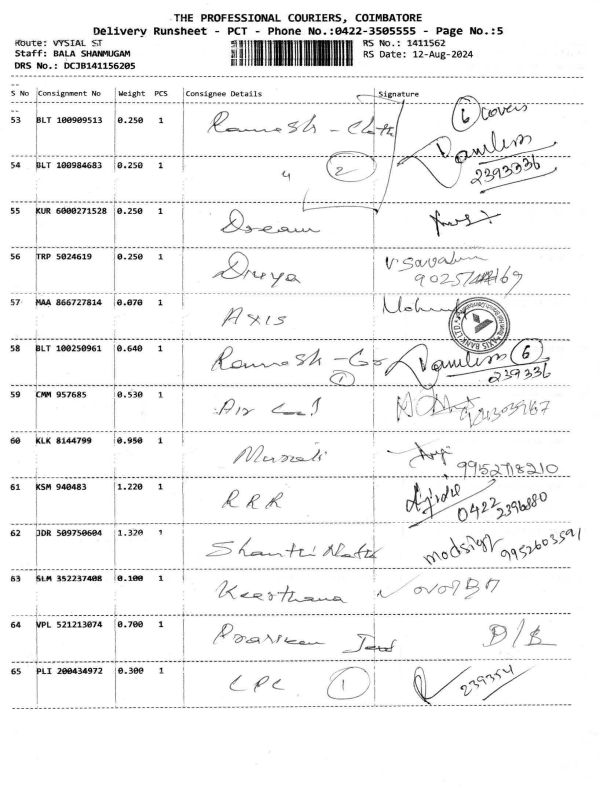 THE PROFESSIONAL COURIERS, COIMBATORE
Delivery Runsheet - PCT - Phone No.:0422-3505555 - Page No.:5
Route: VYSIAL ST RS No.: 1411562
Staff: BALA SHANMUGAM RS Date: 12-Aug-2024
DRS No.: DCJB141156205
S No Consignment No Weight PCS Consignee Details Signature
53 BLT 100909513 0.250 1 Ramesh - Cloth 6 covers
54 BLT 100984683 0.250 1 4 2 2393336
55 KUR 6000271528 0.250 1 Dream
56 TRP 5024619 0.250 1 Divya
57 MAA 866727814 0.070 1 Axis AXIS BANK LTD
58 BLT 100250961 0.640 1 Ramesh - 1 6
239336
59 CMM 957685 0.530 1 Air
60 KLK 8144799 0.950 1 Murali 9952718210
61 KSM 940483 1.220 1 RRR 0422 2396880
62 JDR 509750604 1.320 1 Shanthi 9952603591
63 SLM 352237408 0.100 1 Keerthana
64 VPL 521213074 0.700 1 D/B
65 PLI 200434972 0.300 1 CPC 1 239354